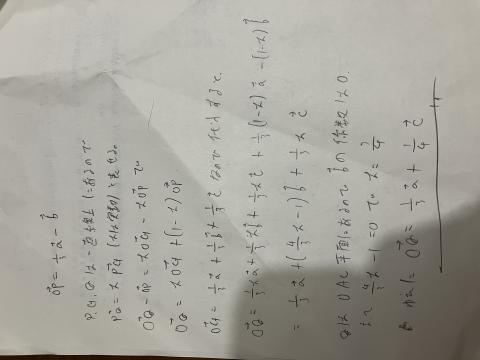 OP⃗ = 1/3 a⃗ − b⃗
P, G, Q は一直線上にあるので
PQ⃗ = x PG⃗ (xは実数) と表せる。
OQ⃗ − OP⃗ = x OG⃗ − x OP⃗ で
OQ⃗ = x OG⃗ + (1−x) OP⃗
OG⃗ = 1/3 a⃗ + 1/3 b⃗ + 1/3 c⃗ なので 代入すると
OQ⃗ = 1/3 x a⃗ + 1/3 x b⃗ + 1/3 x c⃗ + 1/3 (1−x) a⃗ − (1−x) b⃗
= 1/3 a⃗ + (4/3 x − 1) b⃗ + 1/3 x c⃗
Q は OAC 平面にあるので b⃗ の係数は 0.
4/3 x − 1 = 0 で x = 3/4
OQ⃗ = 1/3 a⃗ + 1/4 c⃗